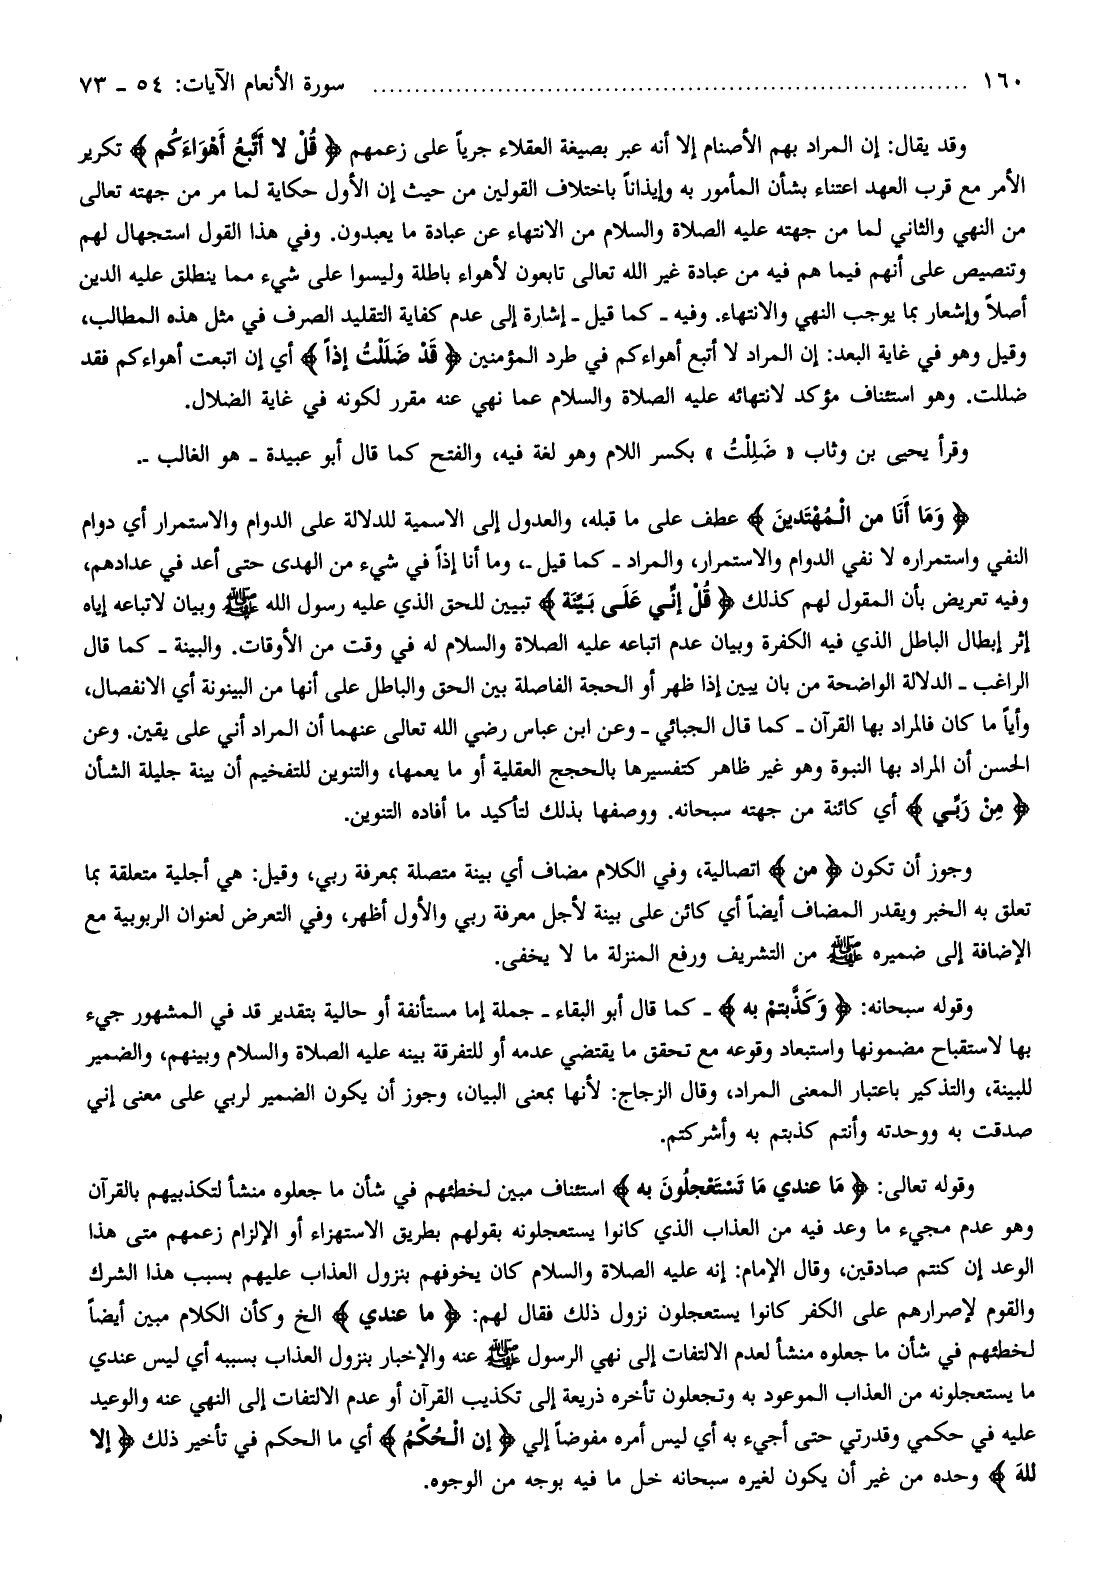 ١٦٠ ........................................................................ سورة الأنعام الآيات: ٥٤ ـ ٧٣
وقد يقال: إن المراد بهم الأصنام إلا أنه عبر بصيغة العقلاء جرياً على زعمهم ﴿ قُلْ لا أَتَّبعُ أَهْوَاءَكُم ﴾ تكرير
الأمر مع قرب العهد اعتناء بشأن المأمور به وإيذاناً باختلاف القولين من حيث إن الأول حكاية لما مر من جهته تعالى
من النهي والثاني لما من جهته عليه الصلاة والسلام من الانتهاء عن عبادة ما يعبدون. وفي هذا القول استجهال لهم
وتنصيص على أنهم فيما هم فيه من عبادة غير الله تعالى تابعون لأهواء باطلة وليسوا على شيء مما ينطلق عليه الدين
أصلاً وإشعار بما يوجب النهي والانتهاء. وفيه ـ كما قيل ـ إشارة إلى عدم كفاية التقليد الصرف في مثل هذه المطالب،
وقيل وهو في غاية البعد: إن المراد لا أتبع أهواءكم في طرد المؤمنين ﴿ قَدْ ضَلَلْتُ إذاً ﴾ أي إن اتبعت أهواءكم فقد
ضللت. وهو استئناف مؤكد لانتهائه عليه الصلاة والسلام عما نهي عنه مقرر لكونه في غاية الضلال.
وقرأ يحيى بن وثاب « ضَلِلْتُ » بكسر اللام وهو لغة فيه، والفتح كما قال أبو عبيدة ـ هو الغالب ـ.
﴿ وَمَا أَنَا من الْمُهْتَدينَ ﴾ عطف على ما قبله، والعدول إلى الاسمية للدلالة على الدوام والاستمرار أي دوام
النفي واستمراره لا نفي الدوام والاستمرار، والمراد ـ كما قيل ـ، وما أنا إذاً في شيء من الهدى حتى أعد في عدادهم،
وفيه تعريض بأن المقول لهم كذلك ﴿ قُلْ إنِّي عَلَى بَيِّنَة ﴾ تبيين للحق الذي عليه رسول الله ﷺ وبيان لاتباعه إياه
إثر إبطال الباطل الذي فيه الكفرة وبيان عدم اتباعه عليه الصلاة والسلام له في وقت من الأوقات. والبينة ـ كما قال
الراغب ـ الدلالة الواضحة من بان يبين إذا ظهر أو الحجة الفاصلة بين الحق والباطل على أنها من البينونة أي الانفصال،
وأياً ما كان فالمراد بها القرآن ـ كما قال الجبائي ـ وعن ابن عباس رضي الله تعالى عنهما أن المراد أني على يقين. وعن
الحسن أن المراد بها النبوة وهو غير ظاهر كتفسيرها بالحجج العقلية أو ما يعمها، والتنوين للتفخيم أن بينة جليلة الشأن
﴿ مِنْ رَبِّي ﴾ أي كائنة من جهته سبحانه. ووصفها بذلك لتأكيد ما أفاده التنوين.
وجوز أن تكون ﴿ من ﴾ اتصالية، وفي الكلام مضاف أي بينة متصلة بمعرفة ربي، وقيل: هي أجلية متعلقة بما
تعلق به الخبر ويقدر المضاف أيضاً أي كائن على بينة لأجل معرفة ربي والأول أظهر، وفي التعرض لعنوان الربوبية مع
الإضافة إلى ضميره ﷺ من التشريف ورفع المنزلة ما لا يخفى.
وقوله سبحانه: ﴿ وَكَذَّبتمْ به ﴾ ـ كما قال أبو البقاء ـ جملة إما مستأنفة أو حالية بتقدير قد في المشهور جيء
بها لاستقباح مضمونها واستبعاد وقوعه مع تحقق ما يقتضي عدمه أو للتفرقة بينه عليه الصلاة والسلام وبينهم، والضمير
للبينة، والتذكير باعتبار المعنى المراد، وقال الزجاج: لأنها بمعنى البيان، وجوز أن يكون الضمير لربي على معنى إني
صدقت به ووحدته وأنتم كذبتم به وأشركتم.
وقوله تعالى: ﴿ مَا عندي مَا تَسْتَعْجلُونَ به ﴾ استئناف مبين لخطئهم في شأن ما جعلوه منشأ لتكذبيهم بالقرآن
وهو عدم مجيء ما وعد فيه من العذاب الذي كانوا يستعجلونه بقولهم بطريق الاستهزاء أو الإلزام زعمهم متى هذا
الوعد إن كنتم صادقين، وقال الإمام: إنه عليه الصلاة والسلام كان يخوفهم بنزول العذاب عليهم بسبب هذا الشرك
والقوم لإصرارهم على الكفر كانوا يستعجلون نزول ذلك فقال لهم: ﴿ ما عندي ﴾ الخ وكأن الكلام مبين أيضاً
لخطئهم في شأن ما جعلوه منشأ لعدم الالتفات إلى نهي الرسول ﷺ عنه والإخبار بنزول العذاب بسببه أي ليس عندي
ما يستعجلونه من العذاب الموعود به وتجعلون تأخره ذريعة إلى تكذيب القرآن أو عدم الالتفات إلى النهي عنه والوعيد
عليه في حكمي وقدرتي حتى أجيء به أي ليس أمره مفوضاً إلي ﴿ إن الْحُكْمُ ﴾ أي ما الحكم في تأخير ذلك ﴿ إلا
للهَ ﴾ وحده من غير أن يكون لغيره سبحانه خل ما فيه بوجه من الوجوه.